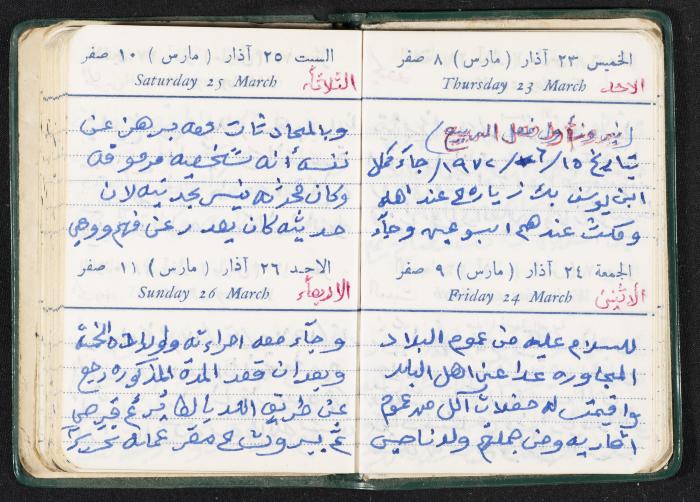 الخميس ٢٣ آذار ( مارس ) ٨ صفر
Thursday 23 March
الاحد
( نيروز أول فصل الربيع )
بتاريخ ١٥/ /١٩٧٢/ جاء
ابن يوسف بك زياره عند اهله
ومكث عندهم اسبوعين وجاء
الجمعة ٢٤ آذار ( مارس ) ٩ صفر
Friday 24 March
الاثنين
للسلام عليه من عموم البلاد
المجاوره عدا عن اهل البلد
واقيمت له حفلات اكل من عموم
اقاربه ومن جملتهم ولدنا
السبت ٢٥ آذار ( مارس ) ١٠ صفر
Saturday 25 March
الثلاثاء
وبالمحادثات معه برهن عن
نفسه أنه شخصيه مرموقه
وكان محدثه بجديه لان
حديثه كان يصدر عن فهم ووعي
الاحد ٢٦ آذار ( مارس ) ١١ صفر
Sunday 26 March
الاربعاء
وجاء معه امراءته واولاده الخمسة
وبعد ان قعد المدة المذكوره رجع
عن طريق
بيروت مقر عمله